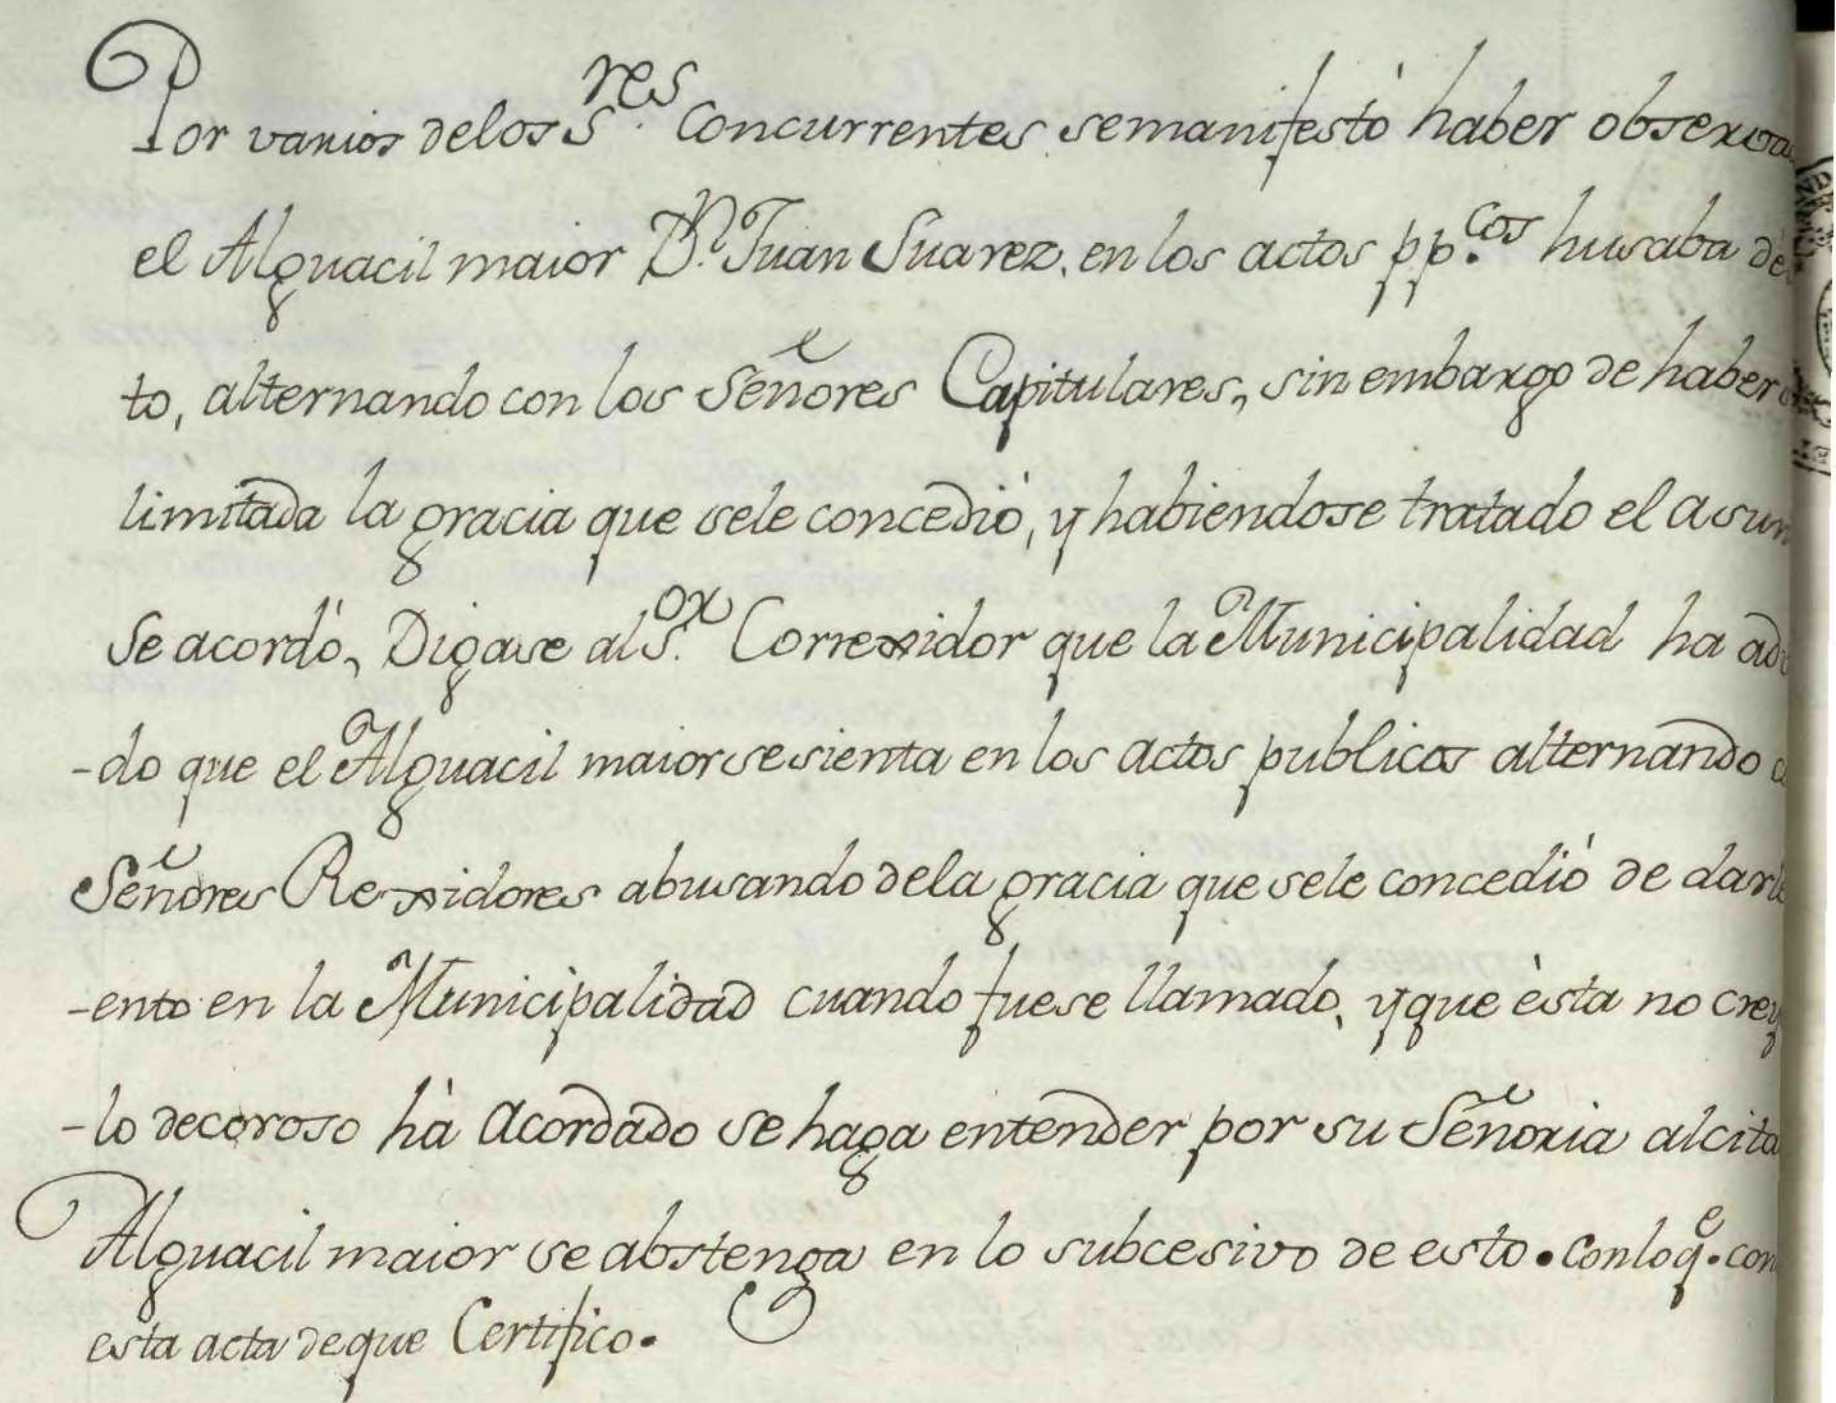 Por varios delos S.res Concurrentes semanifestó haber observa
el Alguacil maior D.n Juan Suarez, en los actos pp.cos husaba de
to, alternando con los Señores Capitulares, sin embargo de haber
limitada la gracia que sele concedió, y habiendose tratado el asun
Se acordó, Digase al S.or Correxidor que la Municipalidad ha ad
-do que el Alguacil maior se sienta en los actos publicos alternando
Señores Rexidores abusando dela gracia que sele concedió de darle
-ento en la Municipalidad cuando fuese llamado, y que èsta no crey
-lo decoroso hà acordado se haga entender por su Señoria alcita
Alguacil maior se abstenga en lo subcesivo de esto. Conloq.e con
esta acta deque Certifico.